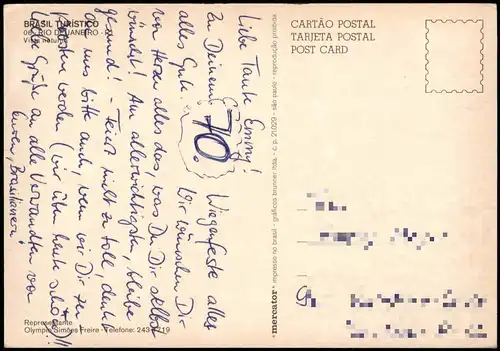 BRASIL TURÍSTICO
06 - RIO DE JANEIRO -
Vista noturna
Liebe Tante Emmy!
Zu Deinem 70. Wiegenfeste alles
alles Gute. Wir wünschen Dir
von Herzen alles das, was Du Dir selbst
wünschst! Am allerwichtigsten, bleibe
gesund! - Feiert nicht zu toll, denkt
an uns bitte auch, wenn wir Dir zu
prosten werden (wir üben heute schon)!!
Liebe Grüße an alle Verwandten von
Euren "Brasilianern"
Representante
Olympio Simões Freire - Telefone: 243-0719
"mercator" · impresso no brasil - gráficos brunner ltda. - c. p. 21.029 - são paulo - reprodução proibida
CARTÃO POSTAL
TARJETA POSTAL
POST CARD